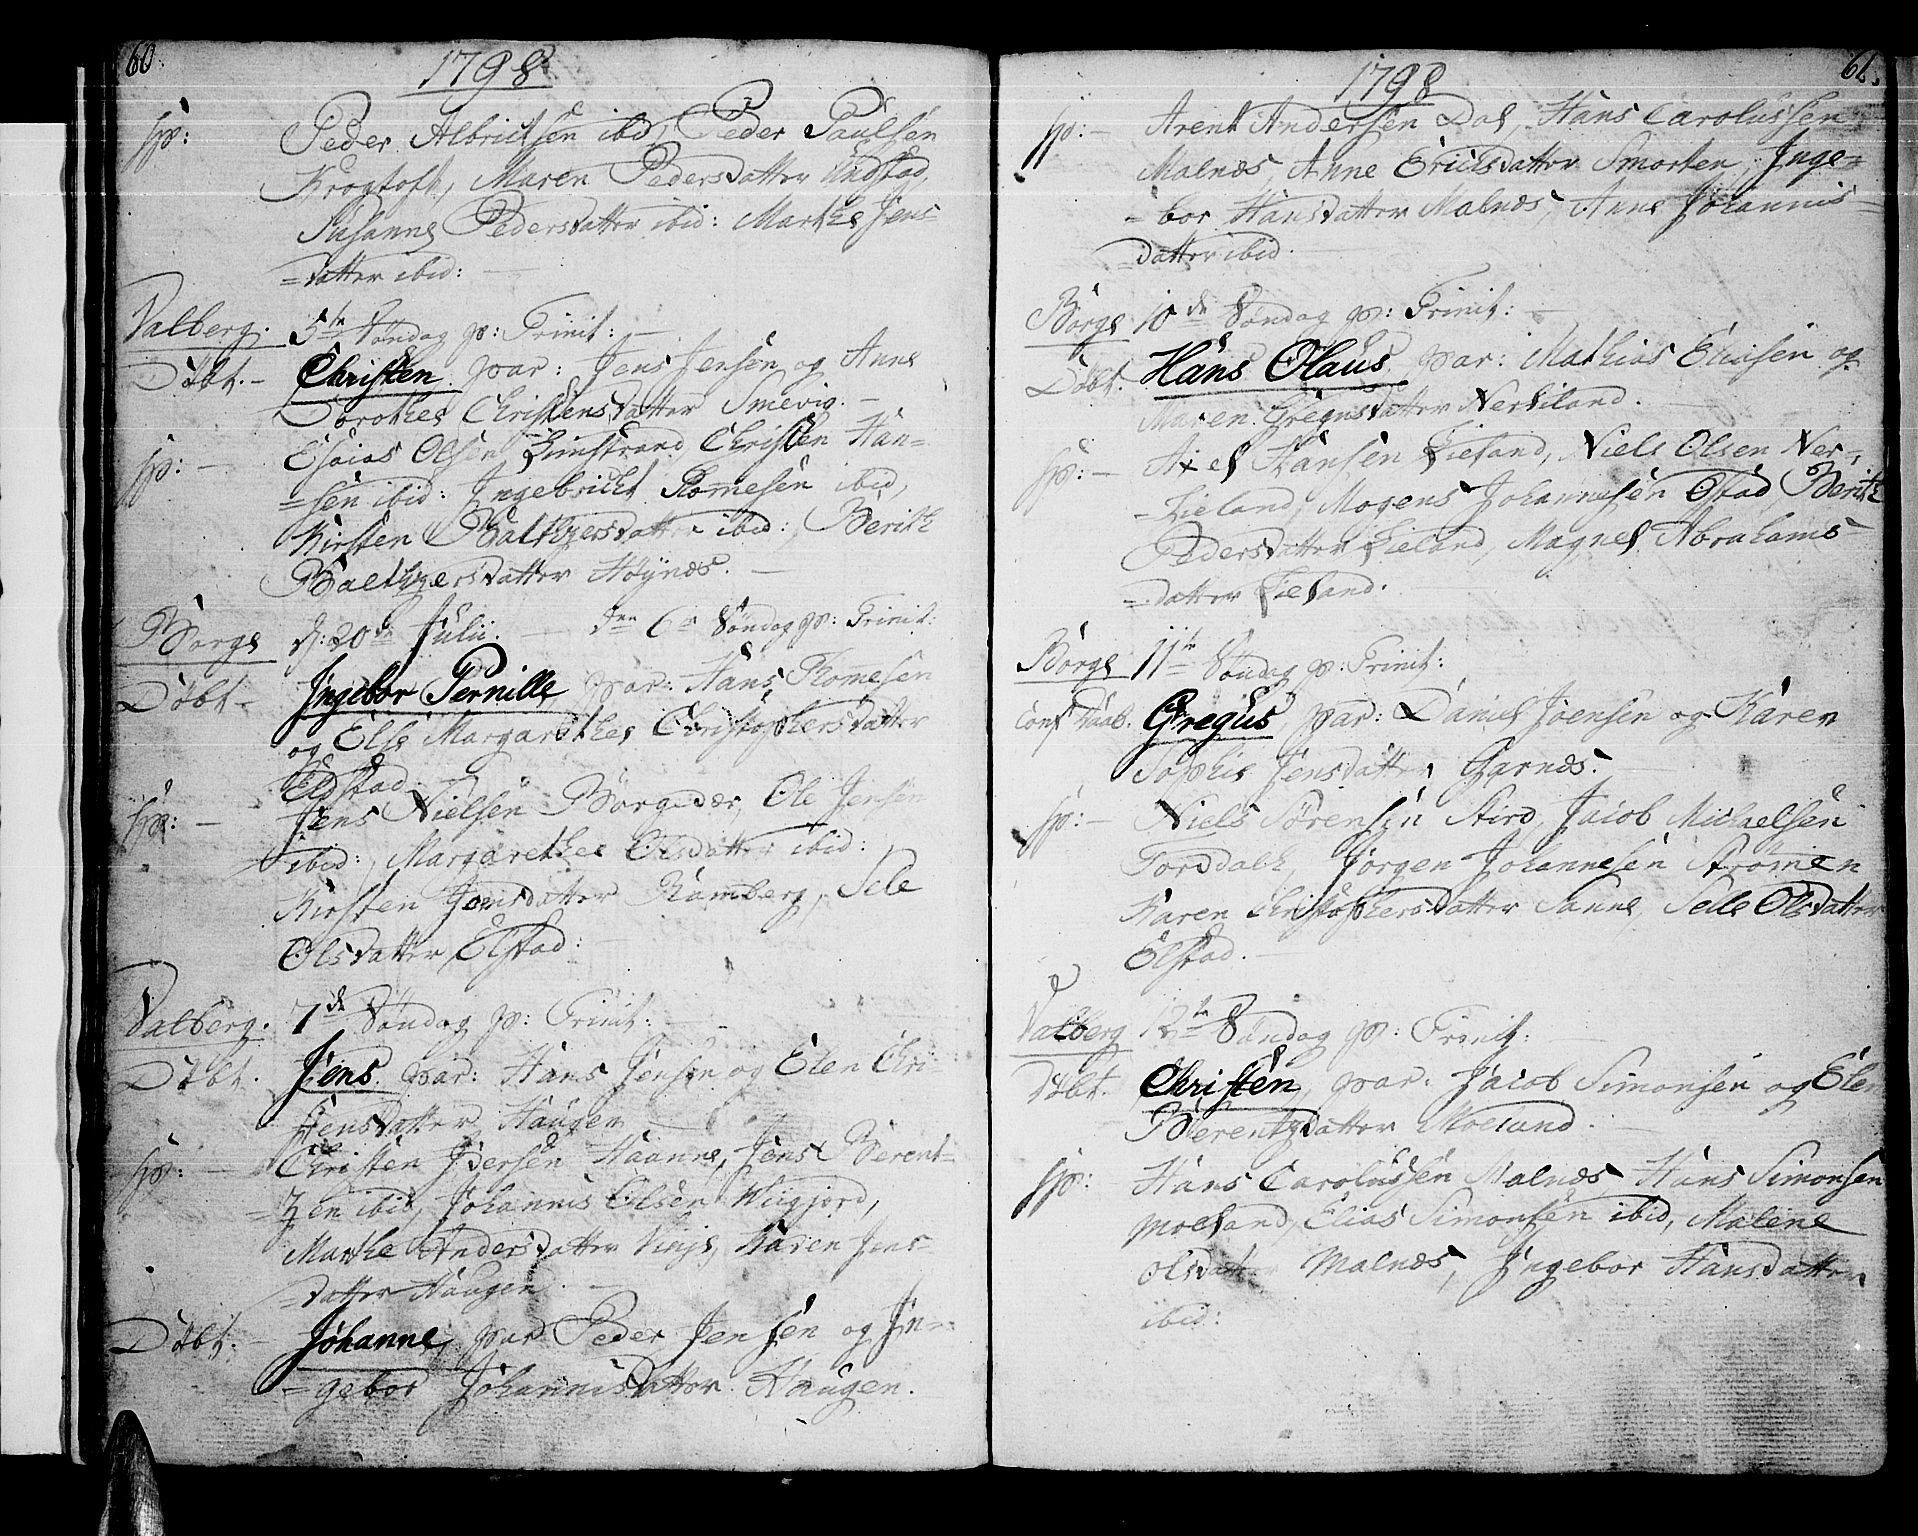 60.
1798
fp:
Peder Albrictsen ibid, Peder Paulsen
Krogtoft, Maren Pedersdatter Undstad,
Susanne Pedersdatter ibid: Marthe Jens
=datter ibid:
Valberg. 5te Søndag p: Trinit:
Døbt. Christen par: Jens Jensen og Anne
Dorothea Christensdatter Smevig.
fp: Esaias Olsen Limstrand, Christen Han=
=sen ibid: Ingebricht Romesen ibid,
Kirsten Balthzersdatter ibid: Berith
Balthzersdatter Høynæs.
Borge d: 20de Julii. den 6te Søndag p: Trinit:
Døbt Ingebor Pernille, par: Hans Romesen
og Else Margarethe Christophersdatter
Elstad
fp: Jens Nielsen Borgevær, Ole Jensen
ibid: Margarethe Olsdatter ibid:
Kirsten Jonsdatter Ramberg, Sele
Olsdatter Elstad:
Valberg. 7de Søndag p: Trinit:
Døbt. Jens. par: Hans Jensen og Elen Chri=
stensdatter Haugen
fp: Christen Iversen Haanne, Jens Berent=
=zen ibid, Johannis Olsen
Marthe Andersdatter Vinje, Karen Jens=
=datter Haugen.
Døbt. Johanne, par Peder Jensen og In=
=gebor Johannisdatter Haugen.
61.
1798
fp: Arent Andersen Dal, Hans Carolussen
Malnæs, Anne Ericsdatter Smorten, Inge=
=bor Hansdatter Malnæs, Anne Johannis=
=datter ibid
Borge 10de Søndag p: Trinit:
Døbt. Hans Olaus, par: Mathias Eliasen og
Maren Gregusdatter
fp: Axel Hansen Lieland, Niels Olsen Ner=
=Lieland, Mogens Johannesen Ostad, Berith
Pedersdatter Lieland, Magnel Abrahams=
=datter Lieland.
Borge 11te Søndag p: Trinit:
Conf Daab. Gregus, par: Daniel Joensen og Karen
Sophie Jensdatter Gjarnæs.
fp: Niels Sørensen Stird, Jacob Michaelsen
Torvdalh, Jørgen Johannesen Strømen
Karen Christophersdatter Sanne, Selle Olsdatter
Elstad.
Valberg 12te Søndag p: Trinit:
Døbt. Christen, par: Jacob Simonsen og Elen
Berentzdatter Moeland.
fp: Hans Carolussen Malnæs Hans Simonsen
Moeland, Elias Simonsen ibid, Malene
Olsdatter Malnæs, Ingebor Hansdatter
ibid: